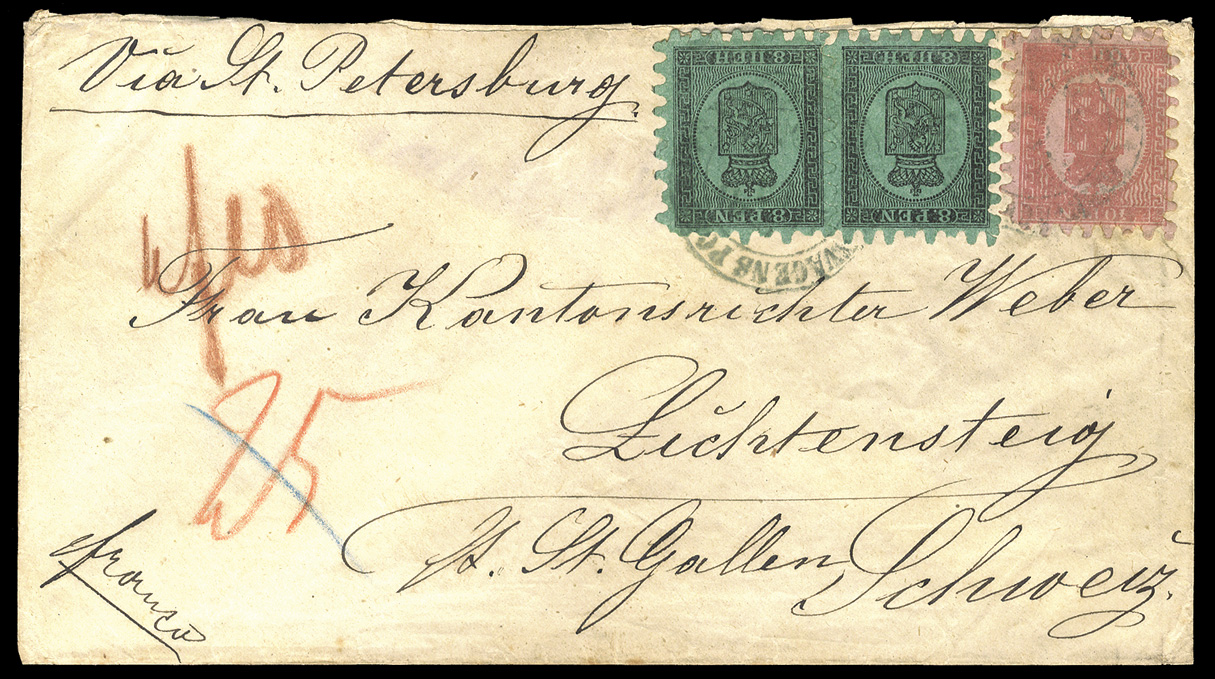 Via St. Petersburg.
8 PEN 8 PEN 10 PEN
8 ПЕН 8 ПЕН
VAGENS PO
Frau Kantonsrichter Weber
Lichtensteig
Kt. St. Gallen, Schweiz.
franco